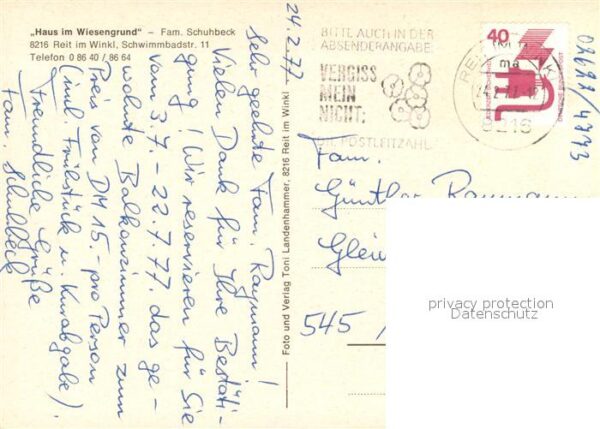 „Haus im Wiesengrund“ – Fam. Schuhbeck
8216 Reit im Winkl, Schwimmbadstr. 11
Telefon 0 86 40 / 86 64
24.2.77
Sehr geehrte Fam. Raymann!
Vielen Dank für Ihre Bestäti-
gung! Wir reservieren für Sie
von 3.7. – 22.7.77. das ge-
wohnte Balkonzimmer zum
Preis von DM 15.- pro Person
(inkl. Frühstück u. Kurabgabe).
Freundliche Grüße
Fam. Schuhbeck
Foto und Verlag Toni Landenhammer, 8216 Reit im Winkl
BITTE AUCH IN DER
ABSENDERANGABE
VERGISS
MEIN
NICHT:
DIE POSTLEITZAHL
40
8216
Fam.
Günther Raymann
545
privacy protection
Datenschutz